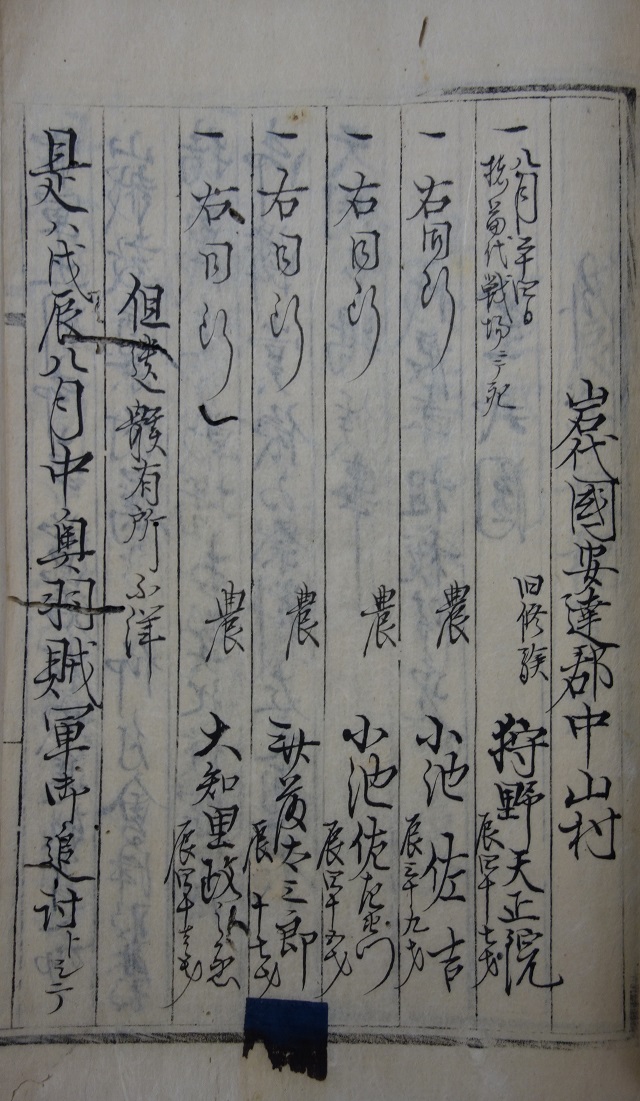 岩代國安達郡中山村
一八月廿四日
於苗代戦場ニ死
旧修験
狩野天正院
辰四十七才
一右同断
農
小池佐吉
辰三十九才
一右同断
農
小池佐左衛門
辰四十五才
一右同断
農
武藤太三郎
辰十七才
一右同断
農
大知里政之
辰四十
但遺骸有所不詳
是ハ戊辰八月中奥羽賊軍御追討トシテ